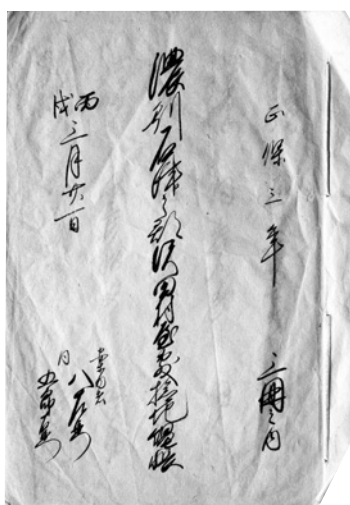 正保三年 三冊之内
濃州石津之郡沢田村検地帳
丙戌三月廿一日
案内者 八右衛門
同